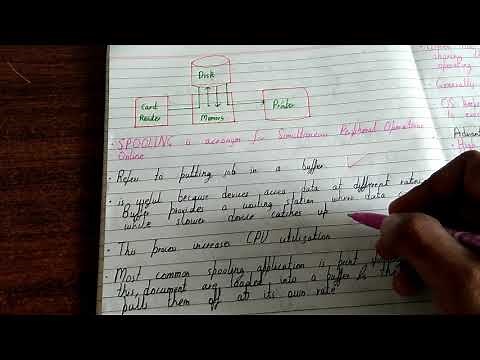 Disk
Card
Reader
Memory
Printer
SPOOLING is acronym for Simultaneous Peripheral Operations
Online
• Refer to putting job in a buffer
• is useful because devices access data at different rates
Buffer provides a waiting station where data
while slower device catches up
• This process increases CPU utilization
• Most common spooling application is print
this, document are loaded into a buffer & the
pulls them off at its own rate
sharing
operating
• Generally
OS
to
Advan
• High